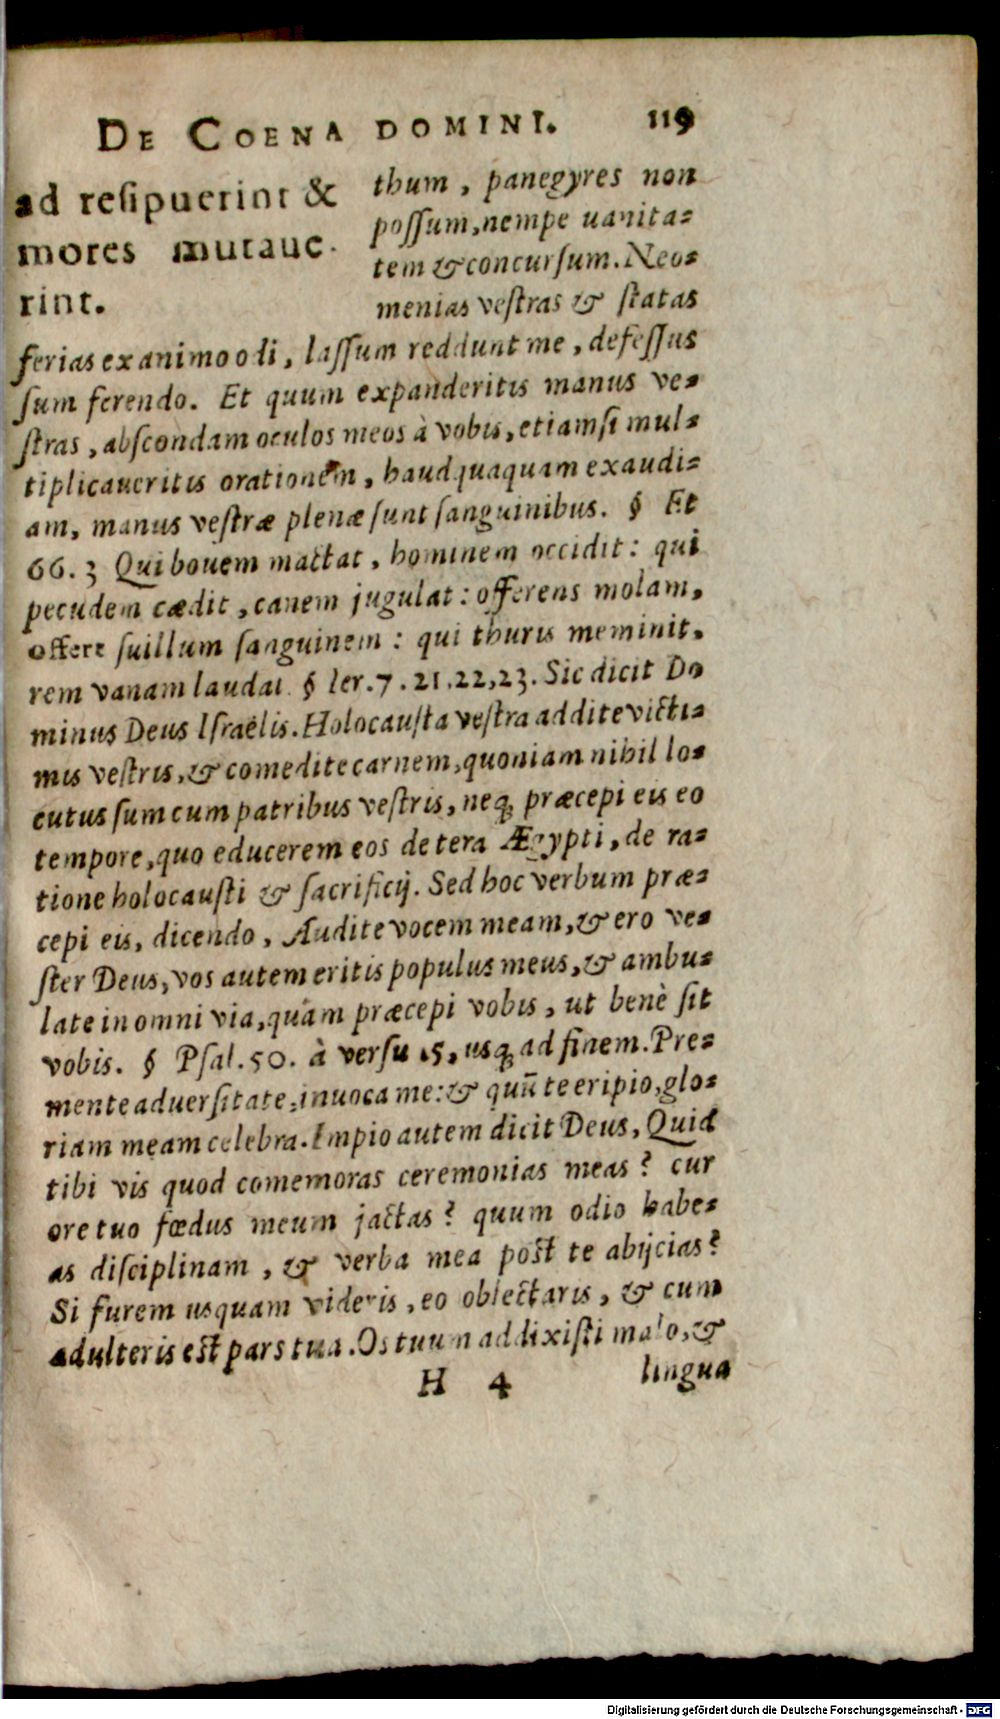 DE COENA DOMINI. 119
ad resipuerint &
mores mutaue-
rint.
thum, panegyres non
possum, nempe uanita=
tem & concursum. Neo=
menias vestras & statas
ferias ex animo odi, lassum reddunt me, defessus
sum ferendo. Et quum expanderitis manus ve=
stras, abscondam oculos meos à vobis, etiamsi mul=
tiplicaueritis orationem, haudquaquam exaudi=
am, manus vestræ plenæ sunt sanguinibus. § Et
66. 3 Qui bouem mactat, hominem occidit: qui
pecudem cædit, canem jugulat: offerens molam,
offert suillum sanguinem: qui thuris meminit,
rem vanam laudat. § Ier. 7. 21, 22, 23. Sic dicit Do
minus Deus Israëlis. Holocausta vestra addite victi=
mis vestris, & comedite carnem, quoniam nihil lo=
cutus sum cum patribus vestris, neq; præcepi eis eo
tempore, quo educerem eos de tera Ægypti, de ra=
tione holocausti & sacrificij. Sed hoc verbum præ=
cepi eis, dicendo, Audite vocem meam, & ero ve=
ster Deus, vos autem eritis populus meus, & ambu=
late in omni via, quàm præcepi vobis, ut benè sit
vobis. § Psal. 50. à versu 15, usq; ad finem. Pre=
mente aduersitate, inuoca me: & quū te eripio, glo=
riam meam celebra. Impio autem dicit Deus, Quid
tibi vis quod comemoras ceremonias meas? cur
ore tuo fœdus meum jactas? quum odio habe=
as disciplinam, & verba mea post te abijcias?
Si furem usquam videris, eo oblectaris, & cum
adulteris est pars tua. Os tuum addixisti malo, &
H 4 lingua
Digitalisierung gefördert durch die Deutsche Forschungsgemeinschaft - DFG